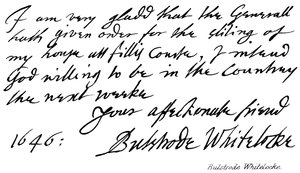 I am very gladd that the Generall
hath given order for the sliding of
my house att fillis Courte, I intend
God willing to be in the Countrey
the next weeke
Your affectionate friend
1646: Bulstrode Whitelocke
Bulstrode Whitelocke.